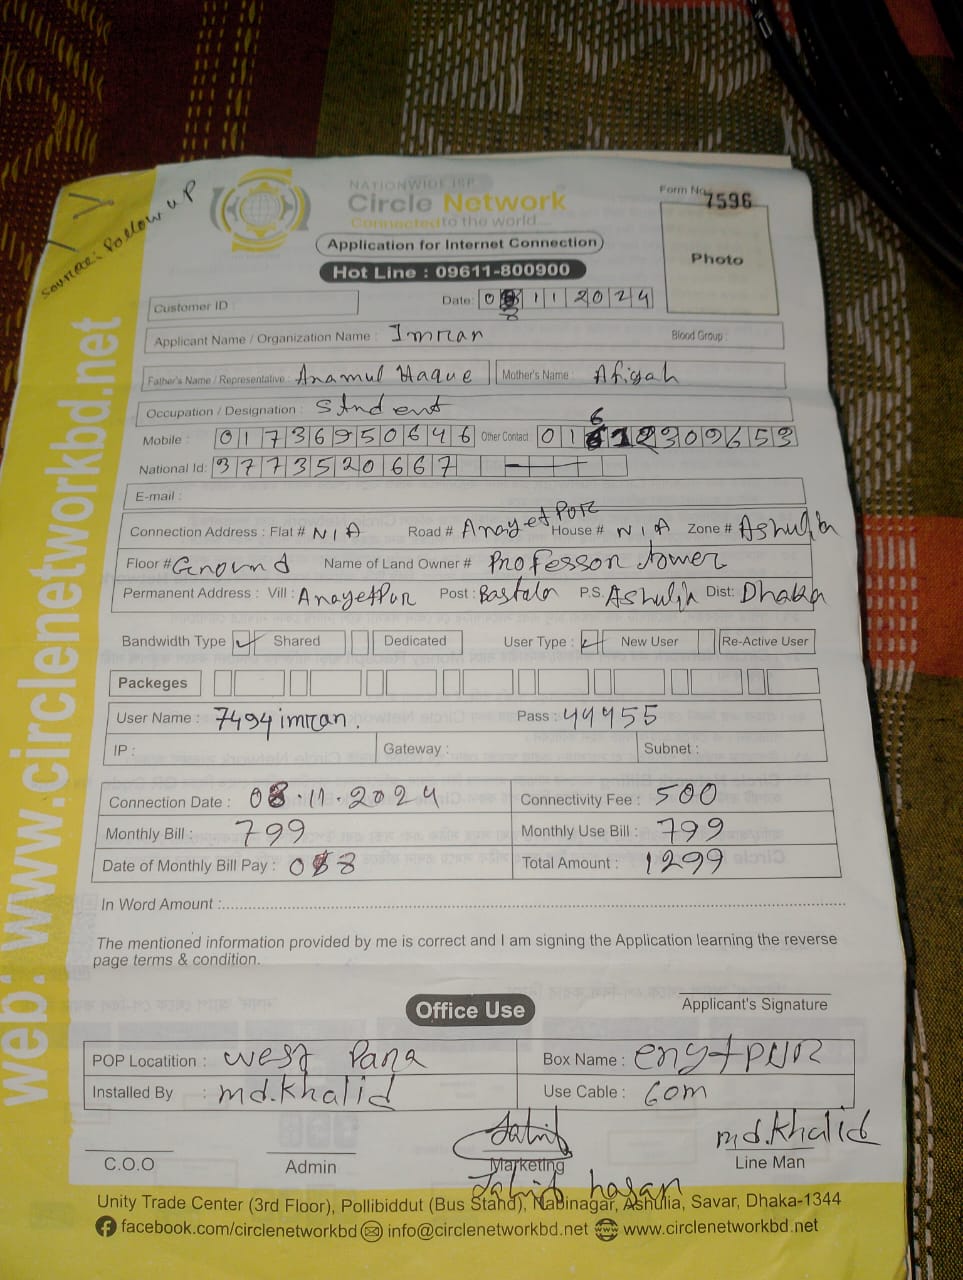 Source: Follow up
NATIONWIDE ISP
Circle Network
Connected to the world....
Application for Internet Connection
Hot Line : 09611-800900
Form No. 7596
Photo
Customer ID :
Date: 08 11 2024
Applicant Name / Organization Name : Imran
Blood Group :
Father's Name / Representative : Anamul Haque Mother's Name : Afiyah
Occupation / Designation : Student
Mobile : 01736950646 Other Contact 016 309653
National Id: 3773520667
E-mail :
Connection Address : Flat # N/A Road # Anayetpur House # N/A Zone # Ashulia
Floor # Ground Name of Land Owner # Professor tower
Permanent Address : Vill : Anayetpur Post : P.S. Ashulia Dist: Dhaka
Bandwidth Type ✓ Shared Dedicated User Type : ✓ New User Re-Active User
Packeges
User Name : 7494imran. Pass : 44455
IP : Gateway : Subnet :
Connection Date : 08.11.2024 Connectivity Fee : 500
Monthly Bill : 799 Monthly Use Bill : 799
Date of Monthly Bill Pay : 08 Total Amount : 1299
In Word Amount :
The mentioned information provided by me is correct and I am signing the Application learning the reverse
page terms & condition.
Applicant's Signature
Office Use
POP Locatition : West Para Box Name : enytpur
Installed By : md.Khalid Use Cable : 60m
md.Khalid
C.O.O Admin Marketing Line Man
hasan
Unity Trade Center (3rd Floor), Pollibiddut (Bus Stand), Nabinagar, Ashulia, Savar, Dhaka-1344
facebook.com/circlenetworkbd info@circlenetworkbd.net www.circlenetworkbd.net
web: www.circlenetworkbd.net